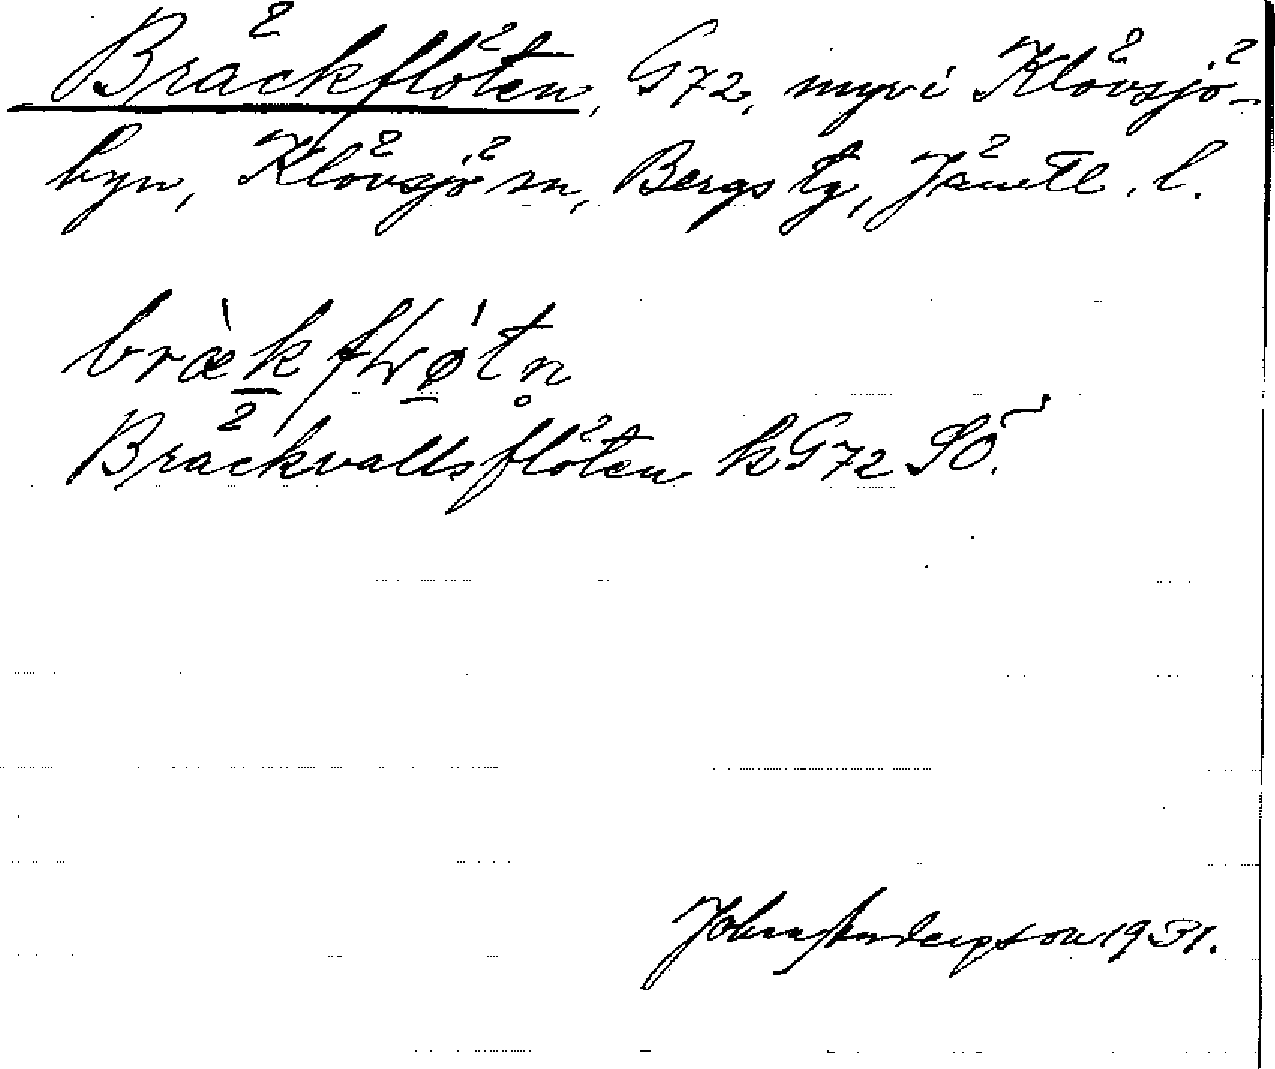 Bräckflöten, G72, myr i Klövsjö-
byn, Klövsjö sn, Bergs tg, Jämtl. l.
bræ̀kflǿtn̥
Bräckvallsflöten kG72 SÖ.
John Andersson 1931.